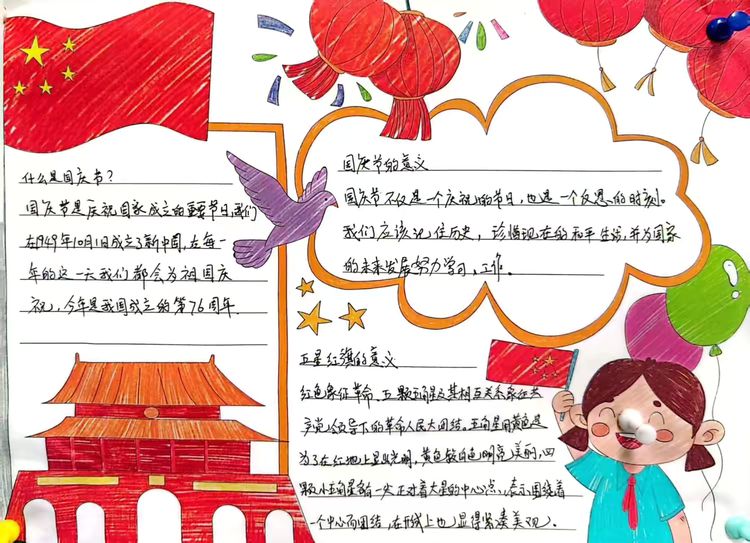 什么是国庆节？
国庆节是庆祝国家成立的重要节日，我们
在1949年10月1日成立了新中国，在每一
年的这一天我们都会为祖国庆
祝，今年是我国成立的第76周年．
国庆节的意义
国庆节不仅是一个庆祝的节日，也是一个反思的时刻。
我们应该记住历史，珍惜现在的和平生活，并为国家
的未来发展努力学习，工作。
五星红旗的意义
红色象征革命，五颗五角星及其相互关系象征共
产党领导下的革命人民大团结。五角星用黄色是
为了在红地上显出光明，黄色较白色明亮美丽，四
颗小五角星各有一尖正对着大星的中心点，表示围绕着
一个中心而团结，在形式上也显得紧凑美观。